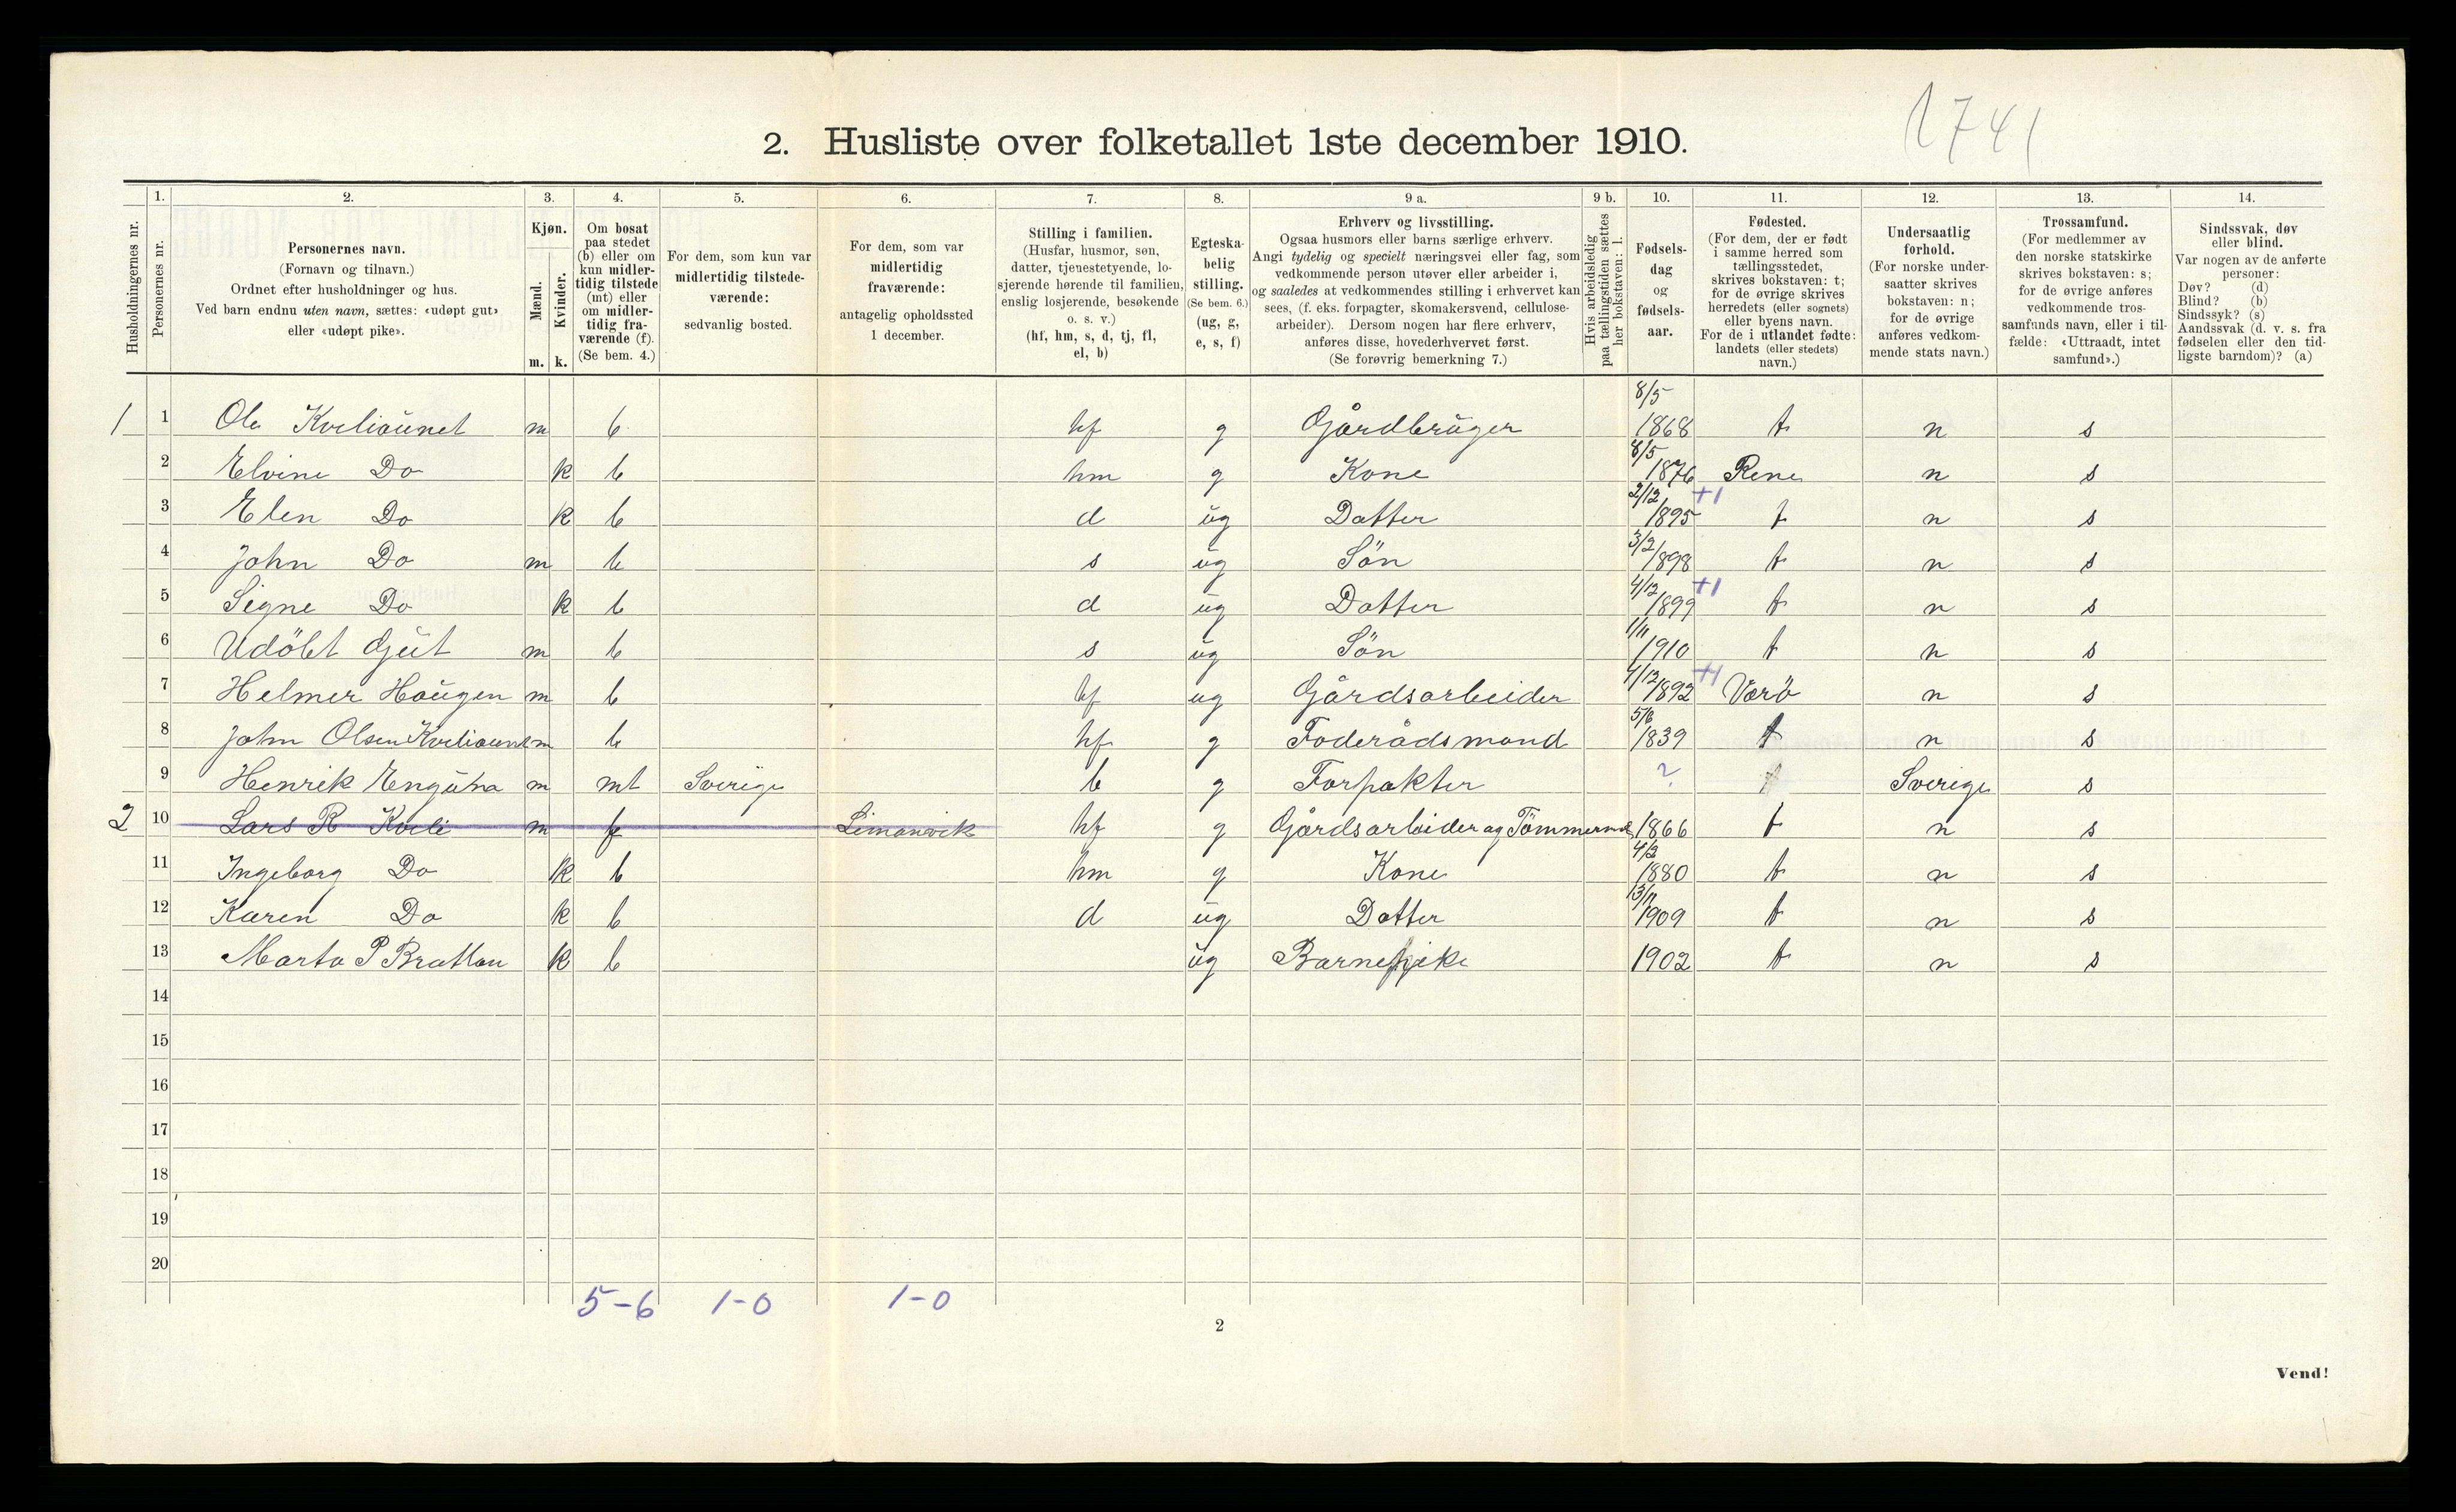 1741
2. Husliste over folketallet 1ste december 1910.
1. 2. 3. 4. 5. 6. 7. 8. 9 a. 9 b. 10. 11. 12. 13. 14.
Husholdningernes nr.
Personernes nr.
Personernes navn.
(Fornavn og tilnavn.)
Ordnet efter husholdninger og hus.
Ved barn endnu uten navn, sættes: «udøpt gut»
eller «udøpt pike».
Kjøn.
Mænd.
Kvinder.
m. k.
Om bosat
paa stedet
(b) eller om
kun midler-
tidig tilstede
(mt) eller
om midler-
tidig fra-
værende (f).
(Se bem. 4.)
For dem, som kun var
midlertidig tilstede-
værende:
sedvanlig bosted.
For dem, som var
midlertidig
fraværende:
antagelig opholdssted
1 december.
Stilling i familien.
(Husfar, husmor, søn,
datter, tjenestetyende, lo-
sjerende hørende til familien,
enslig losjerende, besøkende
o. s. v.)
(hf, hm, s, d, tj, fl,
el, b)
Egteska-
belig
stilling.
(Se bem. 6.)
(ug, g,
e, s, f)
Erhverv og livsstilling.
Ogsaa husmors eller barns særlige erhverv.
Angi tydelig og specielt næringsvei eller fag, som
vedkommende person utøver eller arbeider i,
og saaledes at vedkommendes stilling i erhvervet kan
sees, (f. eks. forpagter, skomakersvend, cellulose-
arbeider). Dersom nogen har flere erhverv,
anføres disse, hovederhvervet først.
(Se forøvrig bemerkning 7.)
Hvis arbeidsledig
paa tællingstiden sættes
her bokstaven: l.
Fødsels-
dag
og
fødsels-
aar.
Fødested.
(For dem, der er født
i samme herred som
tællingsstedet,
skrives bokstaven: t;
for de øvrige skrives
herredets (eller sognets)
eller byens navn.
For de i utlandet fødte:
landets (eller stedets)
navn.)
Undersaatlig
forhold.
(For norske under-
saatter skrives
bokstaven: n;
for de øvrige
anføres vedkom-
mende stats navn.)
Trossamfund.
(For medlemmer av
den norske statskirke
skrives bokstaven: s;
for de øvrige anføres
vedkommende tros-
samfunds navn, eller i til-
fælde: «Uttraadt, intet
samfund».)
Sindssvak, døv
eller blind.
Var nogen av de anførte
personer:
Døv? (d)
Blind? (b)
Sindssyk? (s)
Aandssvak (d. v. s. fra
fødselen eller den tid-
ligste barndom)? (a)
1 1 Ole Kveliaunet m b hf g Gårdbruger 8/5 1868 t n s
2 Elvine Do k b hm g Kone 8/5 1876 Rene n s
3 Elen Do k b d ug Datter 2/12 1895 +1 t n s
4 John Do m b s ug Sön 3/2 1898 t n s
5 Signe Do k b d ug Datter 4/12 1899 +1 t n s
6 Udöbt Gut m b s ug Sön 1/11 1910 t n s
7 Helmer Haugen m b hf ug Gårdsarbeider 4/12 1892 +1 Værö n s
8 John Olsen Kveliaunet m b hf g Foderådsmand 5/6 1839 t n s
9 Henrik m mt Sverige b g Forpakter ? t Sverige s
2 10 Lars R Kveli m f Limanvik hf g Gårdsarbeider og 1866 t n s
11 Ingeborg Do k b hm g Kone 4/3 1880 t n s
12 Karen Do k b d ug Datter 13/11 1909 t n s
13 Marta P Brattan k b ug Barnepike 1902 t n s
14
15
16
17
18
19
20
5-6 1-0 1-0
2
Vend!